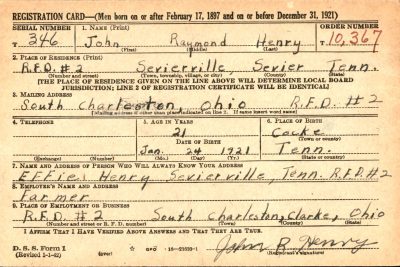 REGISTRATION CARD—(Men born on or after February 17, 1897 and on or before December 31, 1921)
SERIAL NUMBER 1. NAME (Print) ORDER NUMBER
T 346 John Raymond Henry T 10,367
(First) (Middle) (Last)
2. PLACE OF RESIDENCE (Print)
R.F.D. #2 Sevierville, Sevier Tenn.
(Number and street) (Town, township, village, or city) (County) (State)
[THE PLACE OF RESIDENCE GIVEN ON THE LINE ABOVE WILL DETERMINE LOCAL BOARD
JURISDICTION; LINE 2 OF REGISTRATION CERTIFICATE WILL BE IDENTICAL]
3. MAILING ADDRESS
South Charleston, Ohio R.F.D. #2
[Mailing address if other than place indicated on line 2. If same insert word same]
4. TELEPHONE 5. AGE IN YEARS 6. PLACE OF BIRTH
21 Cocke
DATE OF BIRTH (Town or county)
Jan. 24 1921 Tenn.
(Exchange) (Number) (Mo.) (Day) (Yr.) (State or country)
7. NAME AND ADDRESS OF PERSON WHO WILL ALWAYS KNOW YOUR ADDRESS
Effie Henry Sevierville, Tenn. R.F.D. #2
8. EMPLOYER'S NAME AND ADDRESS
Farmer
9. PLACE OF EMPLOYMENT OR BUSINESS
R.F.D. #2 South Charleston, Clarke, Ohio
(Number and street or R. F. D. number) (Town) (County) (State)
I AFFIRM THAT I HAVE VERIFIED ABOVE ANSWERS AND THAT THEY ARE TRUE.
D. S. S. Form 1 GPO
(Revised 1-1-42) John R Henry
(Registrant's signature)